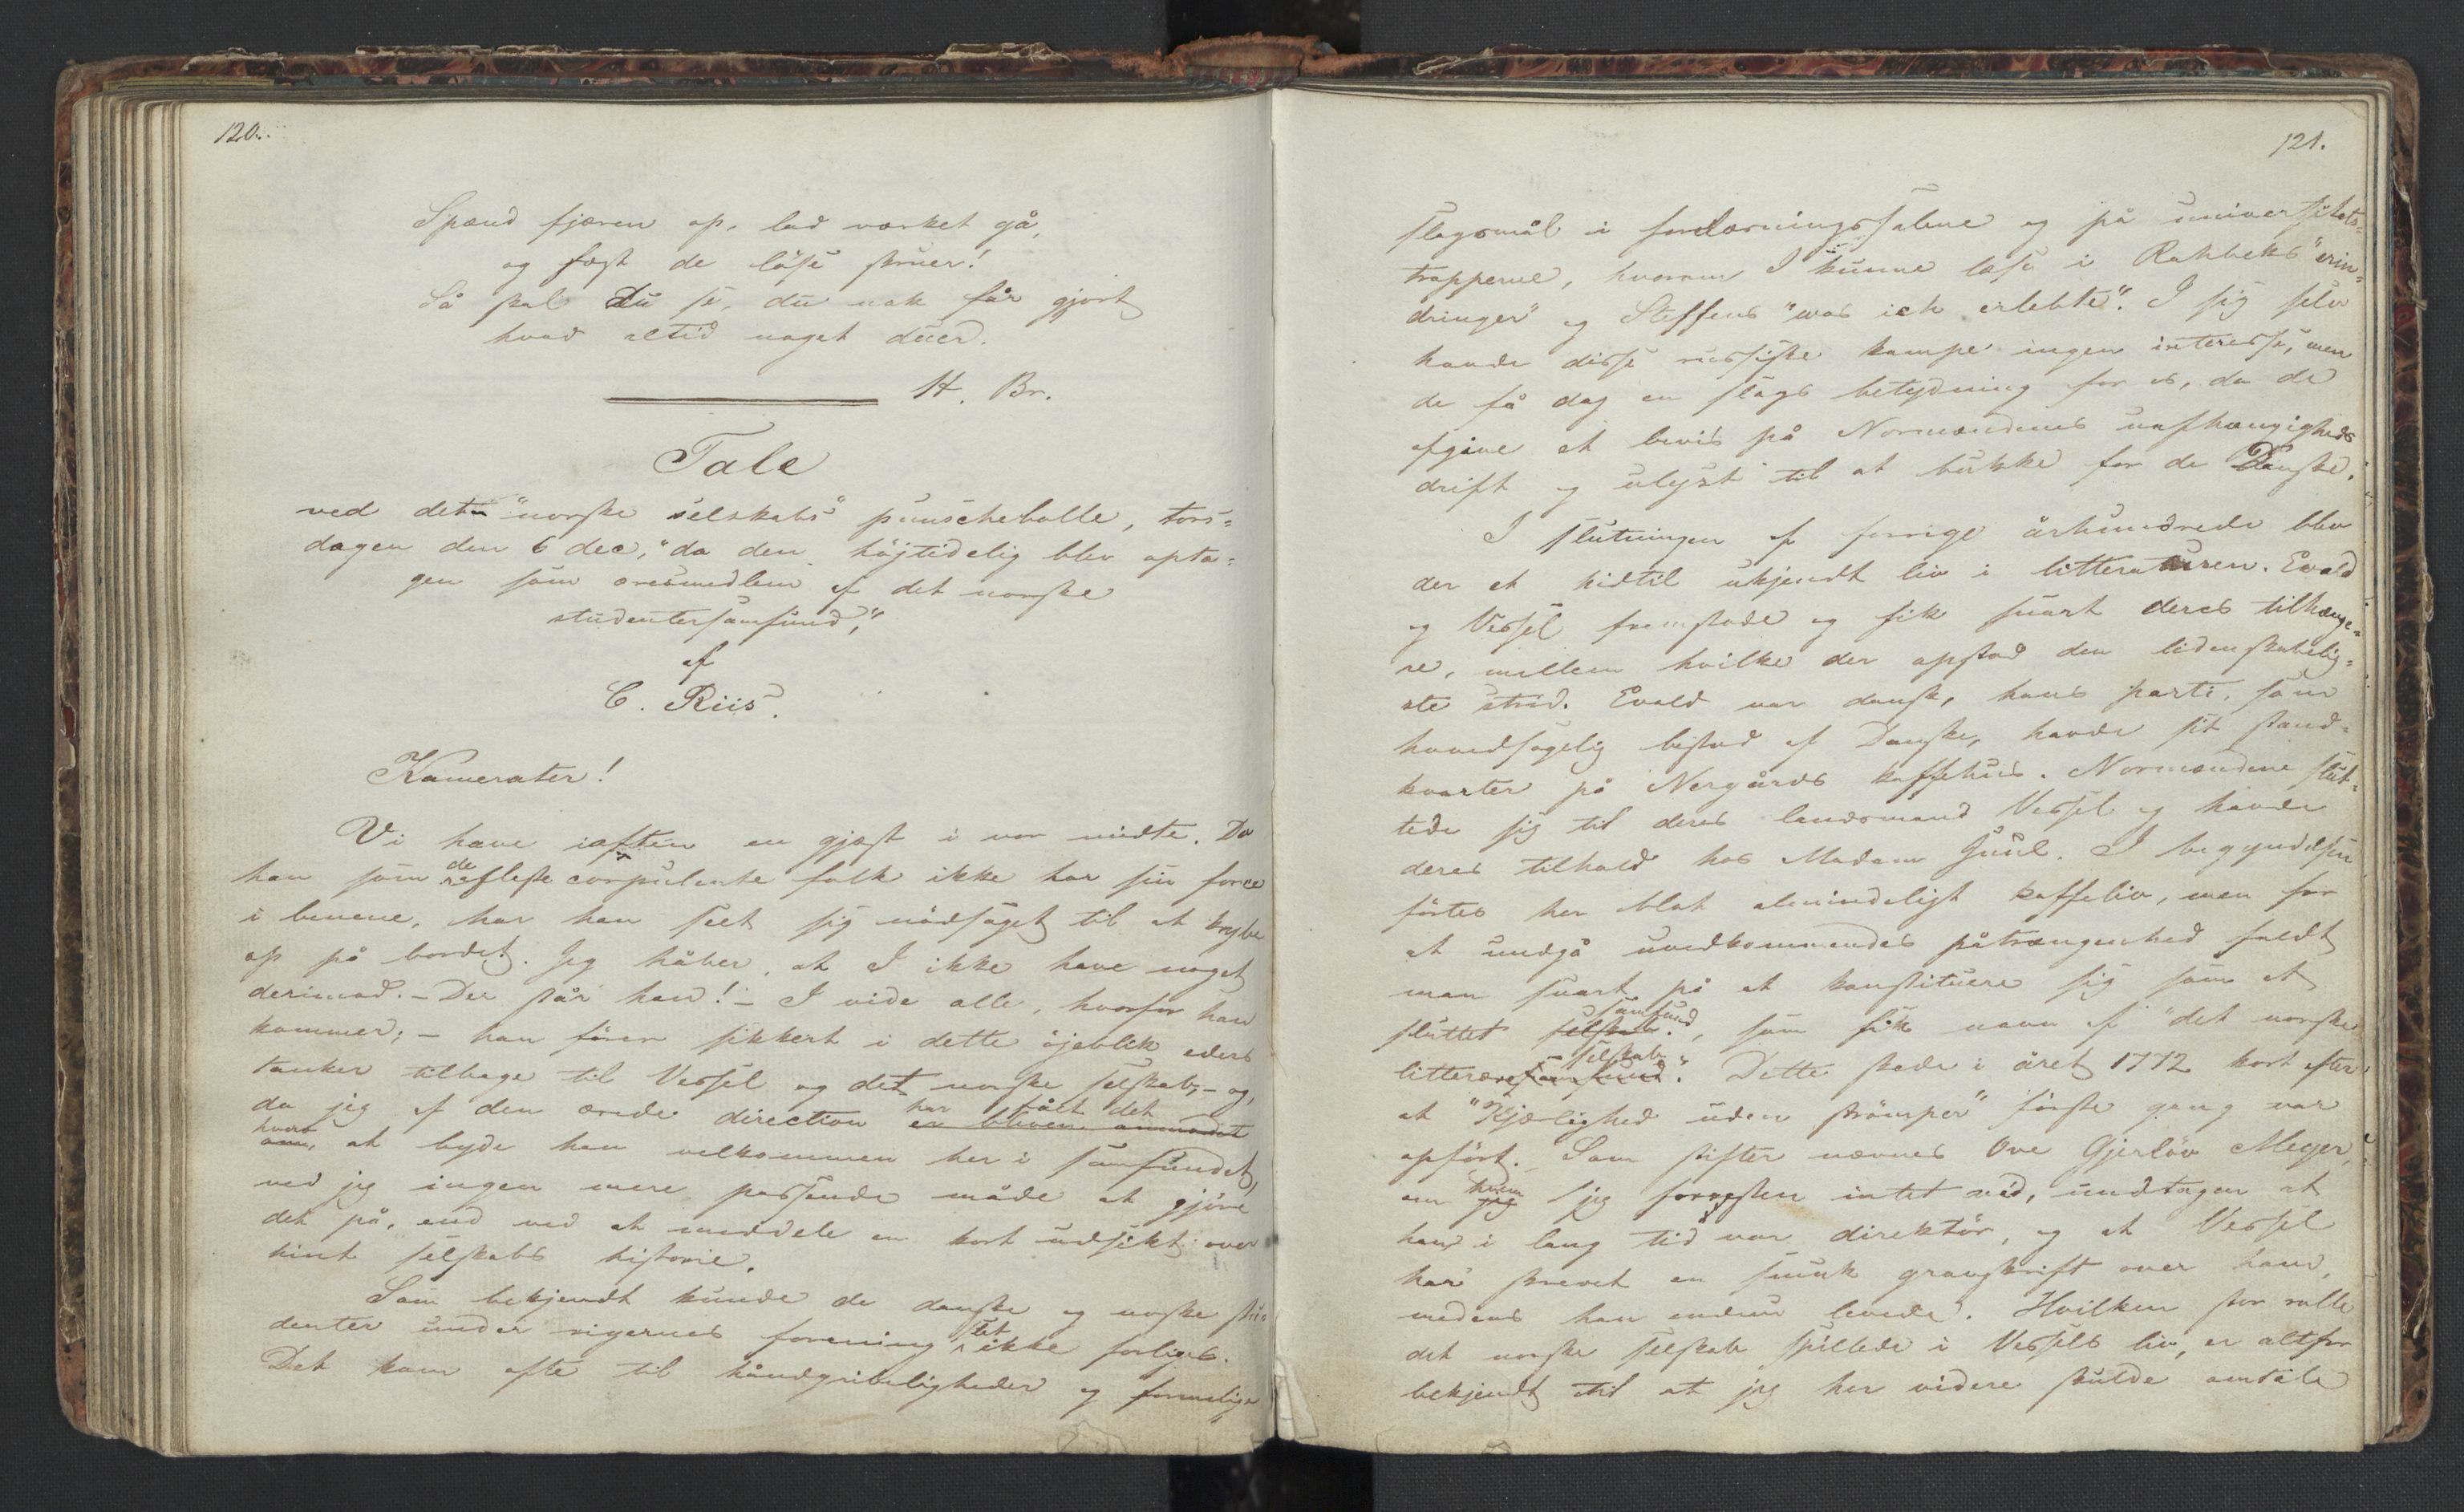 120.
Spænd fjæren op, lad værket gå,
og fæst de löse skruer!
Så skal Du se, du nok får gjort
hvad altid noget duer.
H. Br.
Tale
ved det "norske selskabs" punschebolle, tors=
dagen den 6 dec, "da den höjtidelig blev opta=
gen som æresmedlem af det norske
studentersamfund,"
af
C. Riis.
Kamerater!
Vi have iaften en gjæst i vor midte. Da
han som de fleste corpulente folk ikke har sin force
i benene, har han seet sig nödsaget til at krybe
op på bordet. Jeg håber, at I ikke have noget
derimod. – Der står han! – I vide alle, hvorfor han
kommer; – han förer sikkert i dette öjeblik eders
tanker tilbage til Vessel og det norske selskab, – og,
da jeg af den ærede direction har fåt det
hverv, at byde ham velkommen her i samfundet,
ved jeg ingen mere passende måde at gjöre
det på, end ved at meddele en kort udsikt over
hint selskabs historie.
Som bekjendt kunde de danske og norske stu=
denter under rigernes forening tit ikke forliges.
Det kom ofte til håndgribeligheder og formelige
121.
slagsmål i forelæsningssalene og på universitets=
trapperne, hvorom I kunne læse i Rahbeks "erin=
dringer" og Steffens "was ich erlebte". I sig selv
havde disse russiske kampe ingen interesse, men
de få dog en slags betydning for os, da de
afgive et bevis på Normændenes uafhængigheds
drift og ulyst til at bukke for de Danske.
I slutningen af forrige århundrede blev
der et hidtil ukjendt liv i litteraturen. Evald
og Vessel fremstode og fik snart deres tilhænge=
re, mellem hvilke der opstod den lidenskabelig=
ste strid. Evald var dansk, hans parti, som
hovedsagelig bestod af Danske, havde sit stand=
kvarter på Nergårds kaffehus. Normændene slut=
tede sig til deres landsmand Vessel og havde
deres tilhold hos Madam Juul. I begyndelsen
förtes her blot almindeligt kaffeliv, men for
at undgå uvedkommendes påtrængenhed faldt
man snart på at konstituere sig som et
sluttet samfund, som fik navn af "det norske
litterære selskab". Dette skede i året 1772 kort efter
at "Kjærlighed uden strömper" förste gang var
opfört. Som stifter nævnes Ove Gjerlöv Meyer,
om hvem jeg forresten intet véd, undtagen at
han i lang tid var direktör, og at Vessel
har skrevet en smuk gravskrift over ham,
medens han endnu levede. Hvilken stor rolle
det norske selskab spillede i Vessels liv, er altfor
bekjendt til at jeg her videre skulde omtale